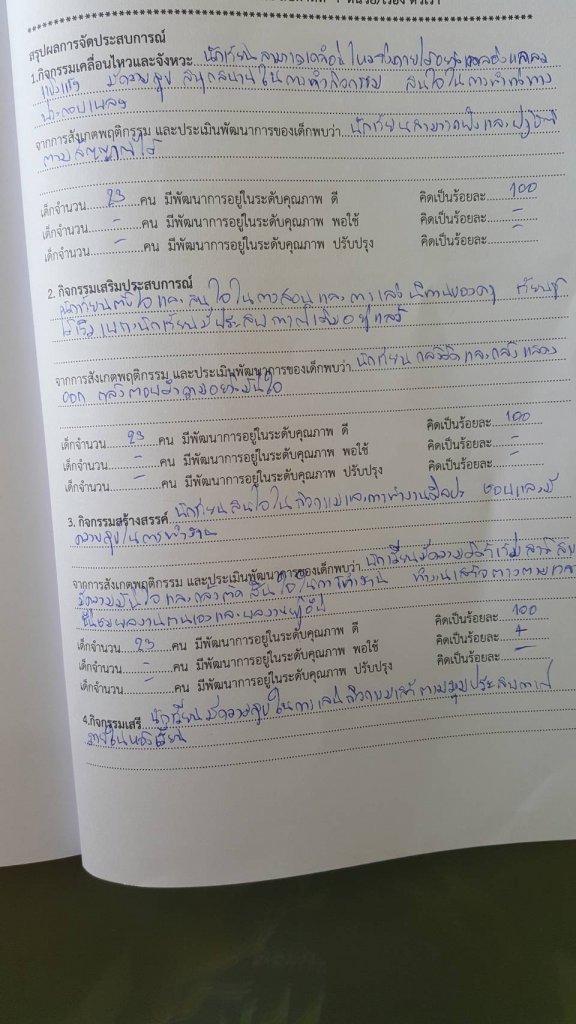 สรุปผลการจัดประสบการณ์
1.กิจกรรมเคลื่อนไหวและจังหวะ นักเรียนสามารถเคลื่อนไหวร่างกายได้อย่างคล่องแคล่ว
แข็งแรง มีความสุข สนุกสนานในการทำกิจกรรม สนใจในการทำท่าทาง
ประกอบเพลง
จากการสังเกตพฤติกรรม และประเมินพัฒนาการของเด็กพบว่า นักเรียนสามารถฟังและปฏิบัติ
ตามสัญญาณได้
เด็กจำนวน 23 คน มีพัฒนาการอยู่ในระดับคุณภาพ ดี คิดเป็นร้อยละ 100
เด็กจำนวน - คน มีพัฒนาการอยู่ในระดับคุณภาพ พอใช้ คิดเป็นร้อยละ -
เด็กจำนวน - คน มีพัฒนาการอยู่ในระดับคุณภาพ ปรับปรุง คิดเป็นร้อยละ -
2. กิจกรรมเสริมประสบการณ์
นักเรียนตั้งใจและสนใจในการสอนและการเล่านิทานของครู เรียนรู้
ได้เร็วเพราะนักเรียนมีประสบการณ์เดิมอยู่แล้ว
จากการสังเกตพฤติกรรม และประเมินพัฒนาการของเด็กพบว่า นักเรียนกล้าคิดและกล้าแสดง
ออก กล้าตอบคำถามอย่างมั่นใจ
เด็กจำนวน 23 คน มีพัฒนาการอยู่ในระดับคุณภาพ ดี คิดเป็นร้อยละ 100
เด็กจำนวน - คน มีพัฒนาการอยู่ในระดับคุณภาพ พอใช้ คิดเป็นร้อยละ -
เด็กจำนวน - คน มีพัฒนาการอยู่ในระดับคุณภาพ ปรับปรุง คิดเป็นร้อยละ -
3. กิจกรรมสร้างสรรค์ นักเรียนสนใจในและการทำงานศิลปะ ชอบและมี
ความสุขในการทำงาน
จากการสังเกตพฤติกรรม และประเมินพัฒนาการของเด็กพบว่า นักเรียนมีความคิดริเริ่มสร้างสรรค์
มีความมั่นใจและกล้าคิด ในการทำงาน ทำงานเสร็จตามเวลา
ชื่นชมผลงานตนเองและผลงานผู้อื่น
เด็กจำนวน 23 คน มีพัฒนาการอยู่ในระดับคุณภาพ ดี คิดเป็นร้อยละ 100
เด็กจำนวน - คน มีพัฒนาการอยู่ในระดับคุณภาพ พอใช้ คิดเป็นร้อยละ
เด็กจำนวน - คน มีพัฒนาการอยู่ในระดับคุณภาพ ปรับปรุง คิดเป็นร้อยละ -
4.กิจกรรมเสรี นักเรียนมีความสุขในการเล่นกิจกรรมเสรีตามมุมประสบการณ์
ภายในห้องเรียน